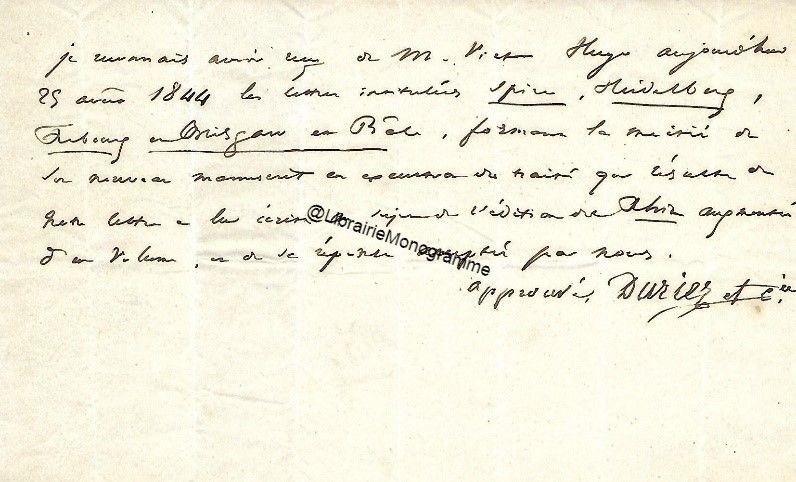 je reconnais avoir reçu de M. Victor Hugo aujourd'hui
25 avril 1844 les lettres intitulées Spire, Heidelberg,
Fribourg en Brisgau et Bâle, formant la moitié de
son nouveau manuscrit en exécution du traité qui résulte de
notre lettre à lui écrite au sujet de l'édition du Rhin augmentée
d'un volume, et de sa réponse acceptée par nous.
approuvé, Duriez et Cie.
@LibrairieMonogramme